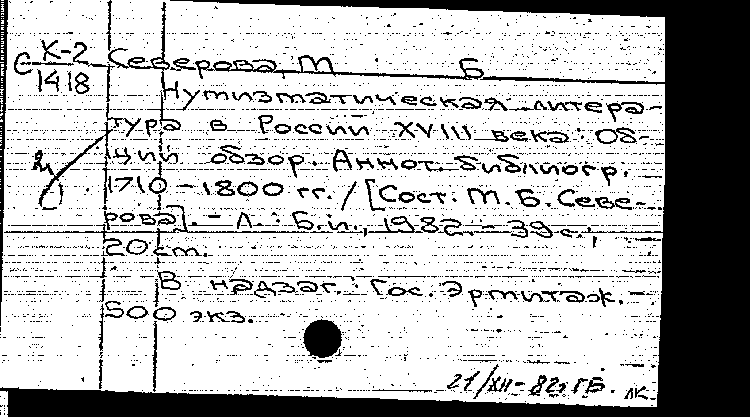 С К-2
1418
Северова, М Б
Нумизматическая литера-
тура в России XVIII века: Об-
щий обзор. Аннот. библиогр.
1710-1800 гг. / [Сост: М.Б. Севе-
рова]. - Л.: Б.и., 1982. - 39 с.;
20 см.
В надзаг.: Гос. Эрмитаж. -
500 экз.
21/XII-82г ГБ. ЛК